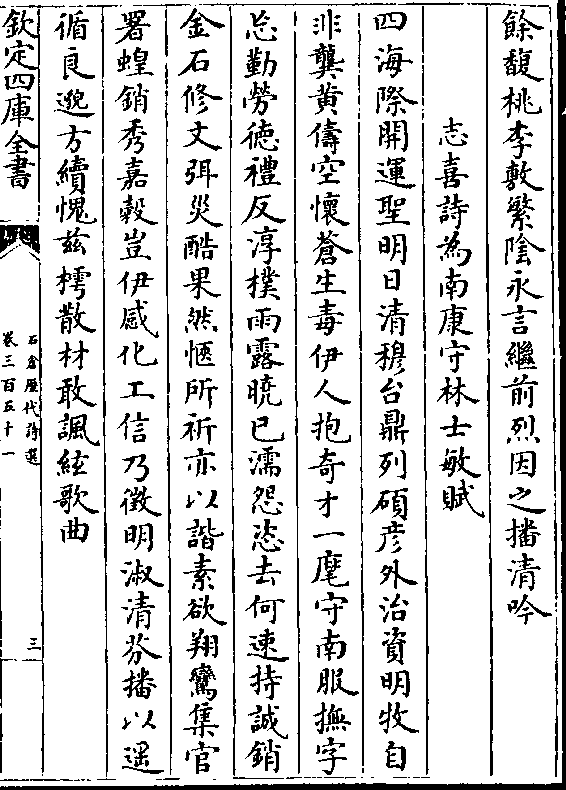 餘馥桃李敷繁陰永言繼前烈因之播清吟
志喜詩為南康守林士敏賦
四海際開運聖明日清穆台鼎列碩彦外治資明牧自
非龔黄儔空懷蒼生毒伊人抱奇才一麾守南服撫字
忘勤勞徳禮反淳樸雨露曉已濡怨恣去何速持誠銷
金石修文弭災酷果然愜所祈亦以諧素欲翔鸞集官
署蝗銷秀嘉穀豈伊感化工信乃徵明淑清芬播以遥
循良邈方續愧兹樗散材敢諷絃歌曲
欽定四庫全書
石倉歷代詩選
卷三百五十一
三